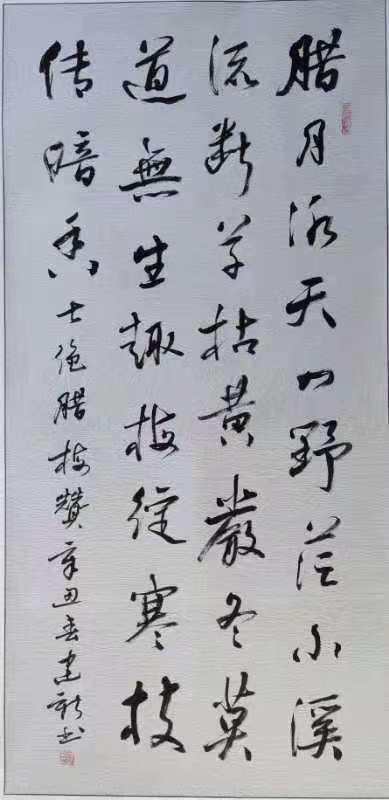 腊月冰天山野茫小溪
流断草枯黄嚴冬莫
道無生趣梅绽寒枝
传暗香
七绝腊梅赞辛丑春建新书